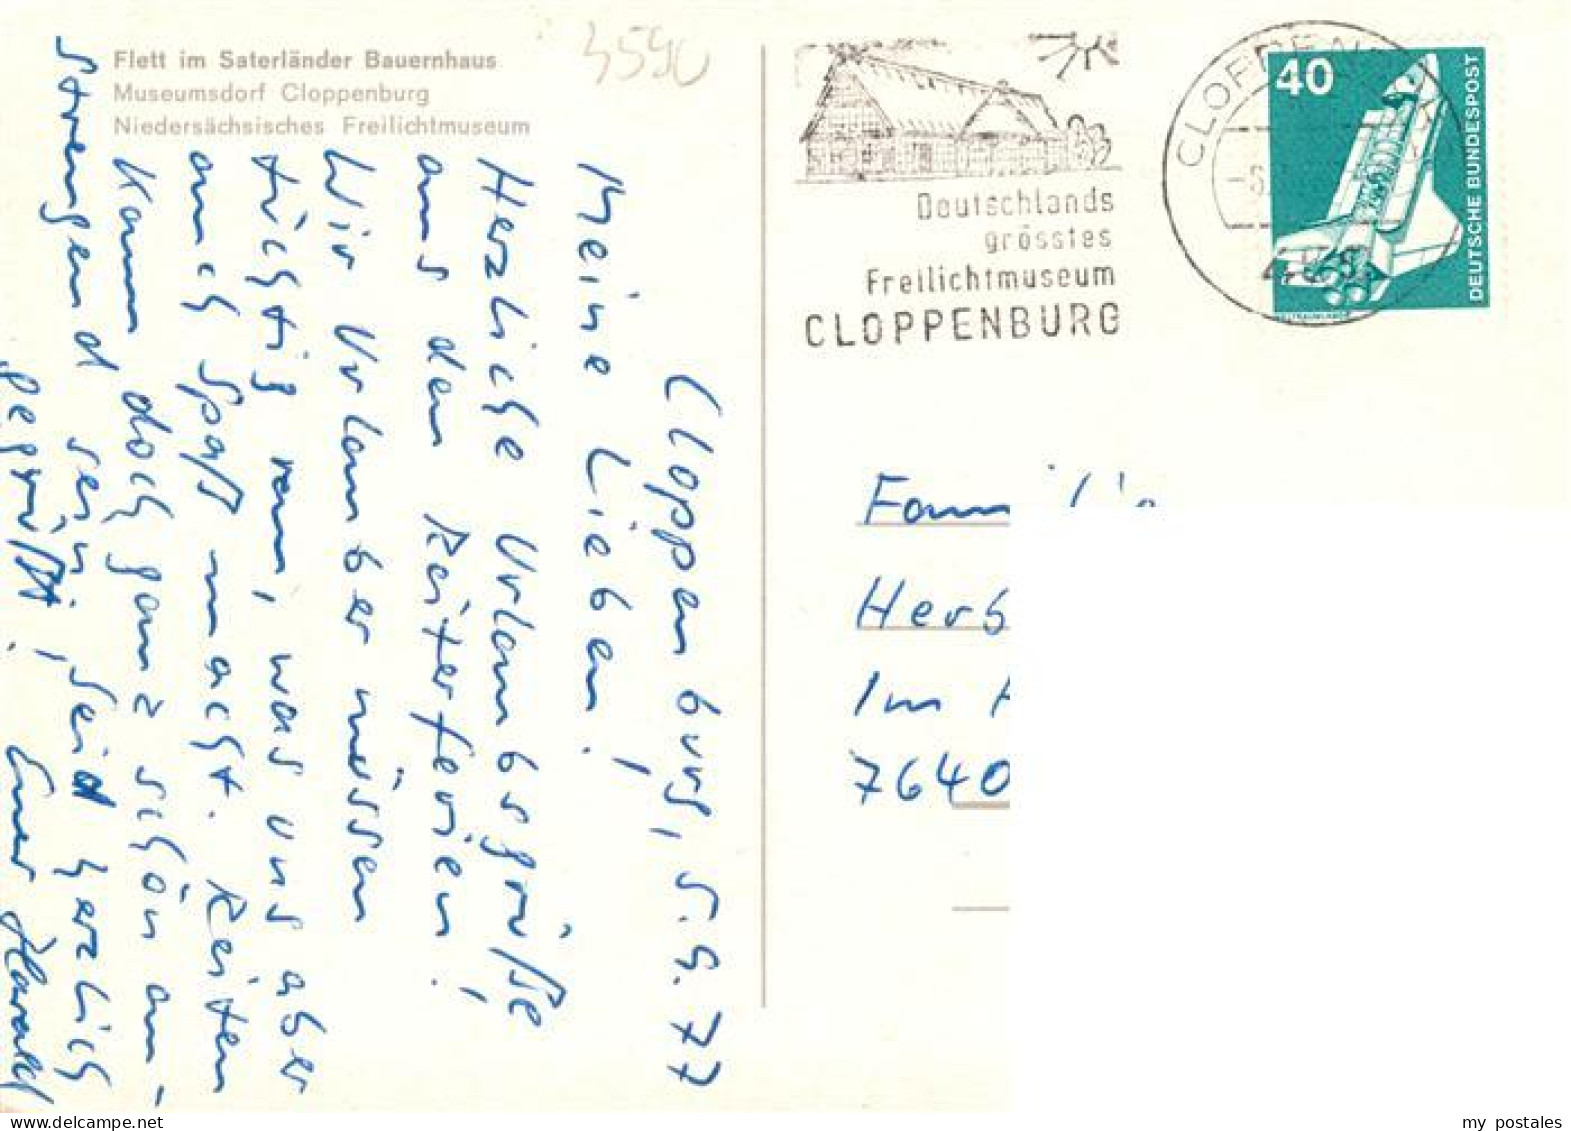 Flett im Saterländer Bauernhaus
Museumsdorf Cloppenburg
Niedersächsisches Freilichtmuseum
4590
Cloppenburg, 5.9.77
Meine Lieben!
Herzliche Urlaubsgrüße
aus den Reiterferien!
Wir Urlauber müssen
tüchtig ran, was uns aber
auch Spaß macht. Reiten
kann doch ganz schön an-
strengend sein; Seid herzlich
gegrüßt. Euer Harald
Deutschlands
grösstes
Freilichtmuseum
CLOPPENBURG
40
DEUTSCHE BUNDESPOST
Herb
Im
7640
my postales